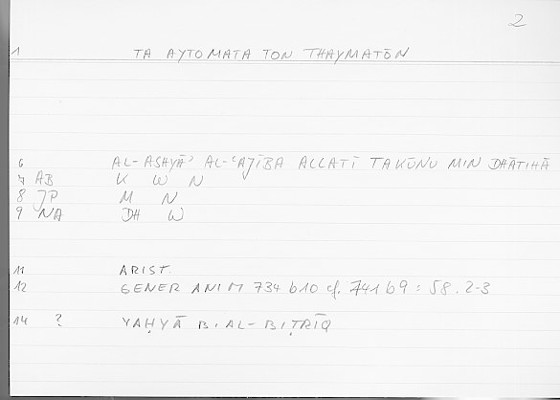 2
1 TA AYTOMATA TON THAYMATŌN
6 AL-ASHYĀʾ AL-ʿAJĪBA ALLATĪ TAKŪNU MIN DHĀTIHĀ
7 AB K W N
8 JP M N
9 NA DH W
11 ARIST.
12 GENER ANIM 734 b10 cf. 741 b9 : 58.2-3
14 ? YAḤYĀ B. AL-BIṬRĪQ